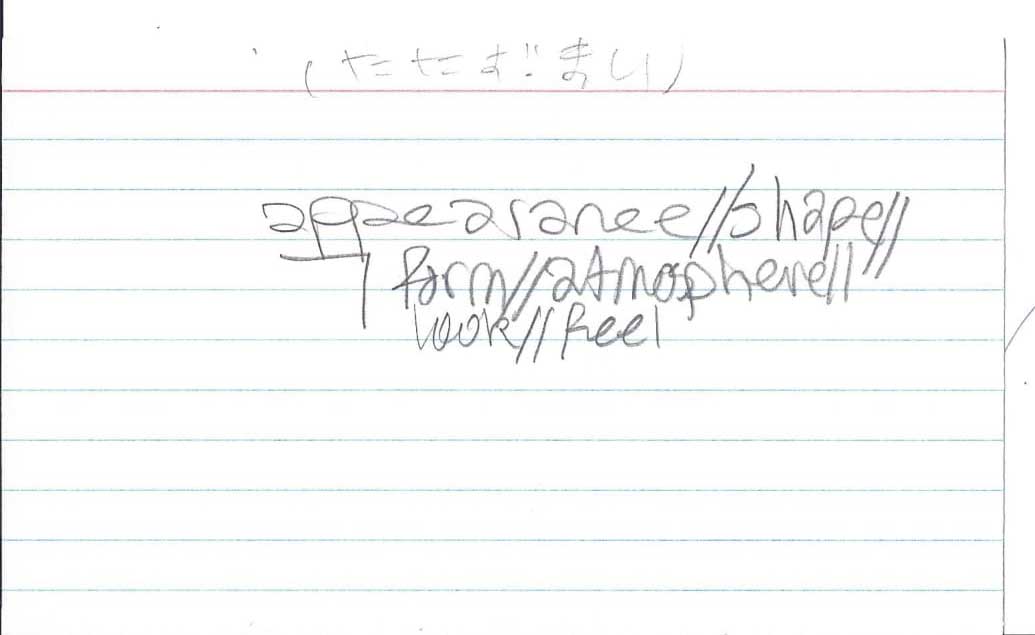 (たたずまい)
appearance//shape//
form//atmosphere//
look//feel